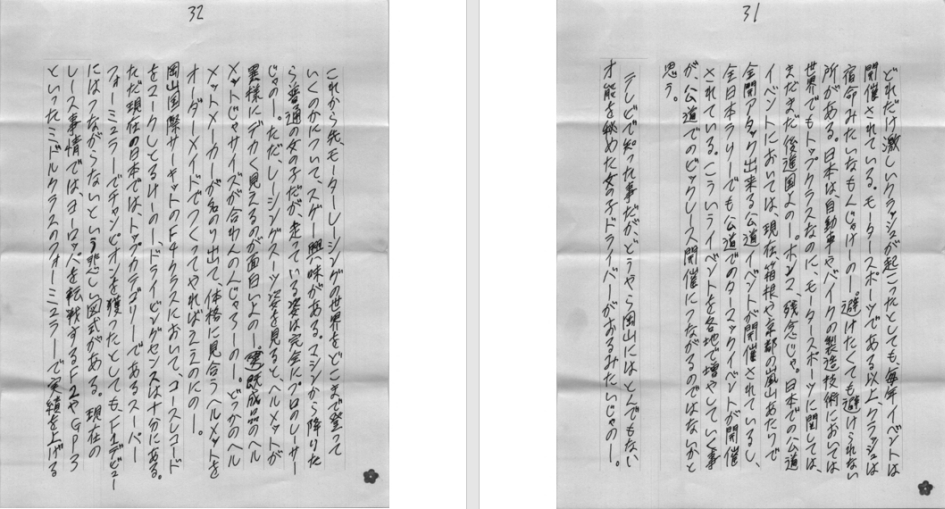 31
どれだけ激しいクラッシュが起こったとしても、毎年イベントは
開催されている。モータースポーツである以上クラッシュは
宿命みたいなもんじゃけーの一。避けたくても避けられない
所がある。日本は自動車やバイクの製造技術においては
世界でもトップクラスなのに、モータースポーツに関しては、
まだまだ後進国よのー。ホンマ、残念じゃ。日本での公道
イベントにおいては、現在、箱根や京都の嵐山あたりで
全開アタック出来る公道イベントが開催されているし、
全日本ラリーでも公道でのターマックイベントが開催
されている。こういうイベントを各地で増やしていく事
が、公道でのビックレース開催につながるのではないかと
思う。
テレビで知った事だが、どうやら岡山にはとんでもない
才能を秘めた女の子ドライバーがおるみたいじゃのー。
32
これから先、モーターレーシングの世界をどこまで登って
いくのかについて、スゲー興味がある。マシンから降りた
ら普通の女の子だが、走っている姿は完全にプロのレーサー
じゃのー。ただ、レーシングスーツ姿を見ると、ヘルメットが
異様にデカく見えるのが面白いよのー。既成品のヘル
メットじゃサイズが合わんのんじゃろーのー。どっかのヘル
メットメーカーが名のり出て、体格に見合うヘルメットを
オーダーメイドでつくってやればええのにのー。
岡山国際サーキットのF4クラスにおいて、コースレコード
をマークしとるけーのー、ドライビングセンスは十分にある。
ただ現在の日本では、トップカテゴリーであるスーパー
フォーミュラーでチャンピオンを獲ったとしても、F1デビュー
にはつながらないという悲しい図式がある。現在の
レース事情では、ヨーロッパを転戦するF2やGP3
といったミドルクラスのフォーミュラーで実績を上げる